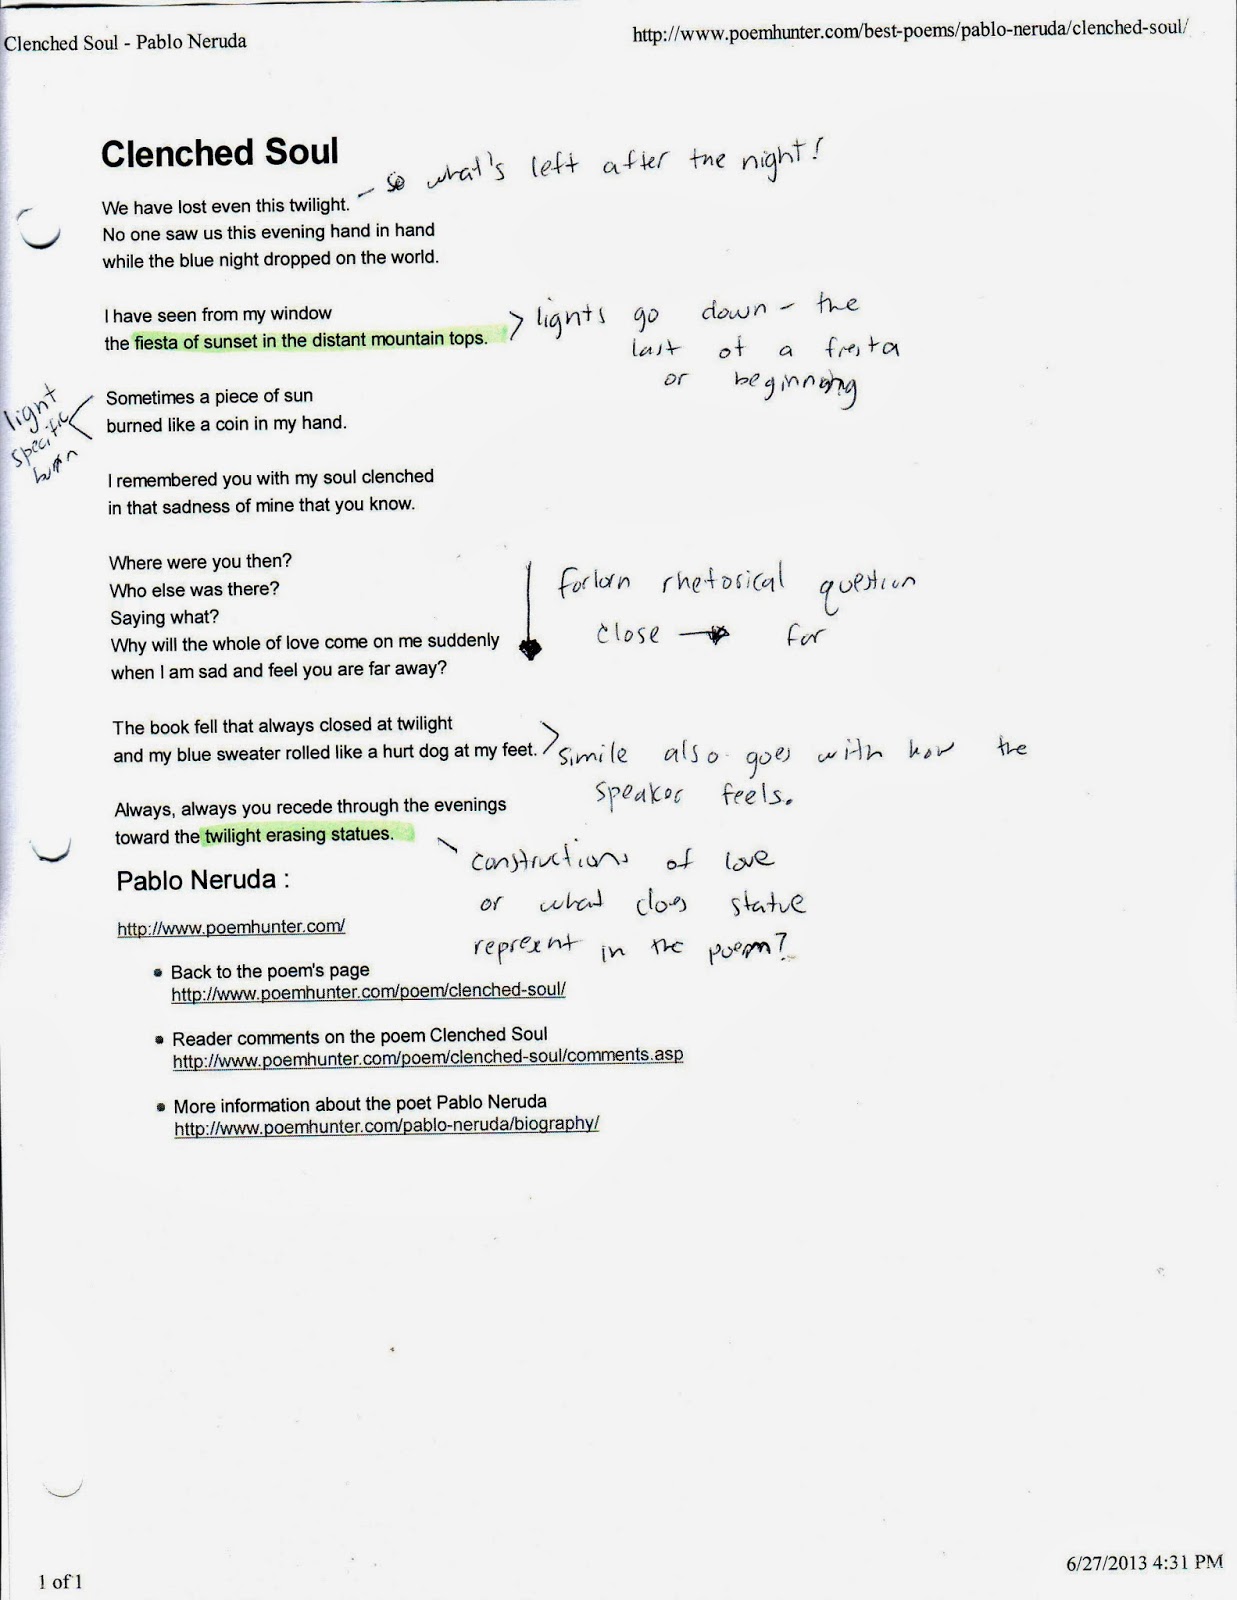 Clenched Soul - Pablo Neruda
http://www.poemhunter.com/best-poems/pablo-neruda/clenched-soul/
Clenched Soul
so what's left after the night!
We have lost even this twilight.
No one saw us this evening hand in hand
while the blue night dropped on the world.
I have seen from my window
the fiesta of sunset in the distant mountain tops.
lights go down - the
last of a fiesta
or beginning
Sometimes a piece of sun
burned like a coin in my hand.
light
specific
burn
I remembered you with my soul clenched
in that sadness of mine that you know.
Where were you then?
Who else was there?
Saying what?
Why will the whole of love come on me suddenly
when I am sad and feel you are far away?
forlorn rhetorical question
close → far
The book fell that always closed at twilight
and my blue sweater rolled like a hurt dog at my feet.
simile also goes with how the
speaker feels.
Always, always you recede through the evenings
toward the twilight erasing statues.
constructions of love
or what does statue
represent in the poem?
Pablo Neruda :
http://www.poemhunter.com/
• Back to the poem's page
http://www.poemhunter.com/poem/clenched-soul/
• Reader comments on the poem Clenched Soul
http://www.poemhunter.com/poem/clenched-soul/comments.asp
• More information about the poet Pablo Neruda
http://www.poemhunter.com/pablo-neruda/biography/
1 of 1
6/27/2013 4:31 PM